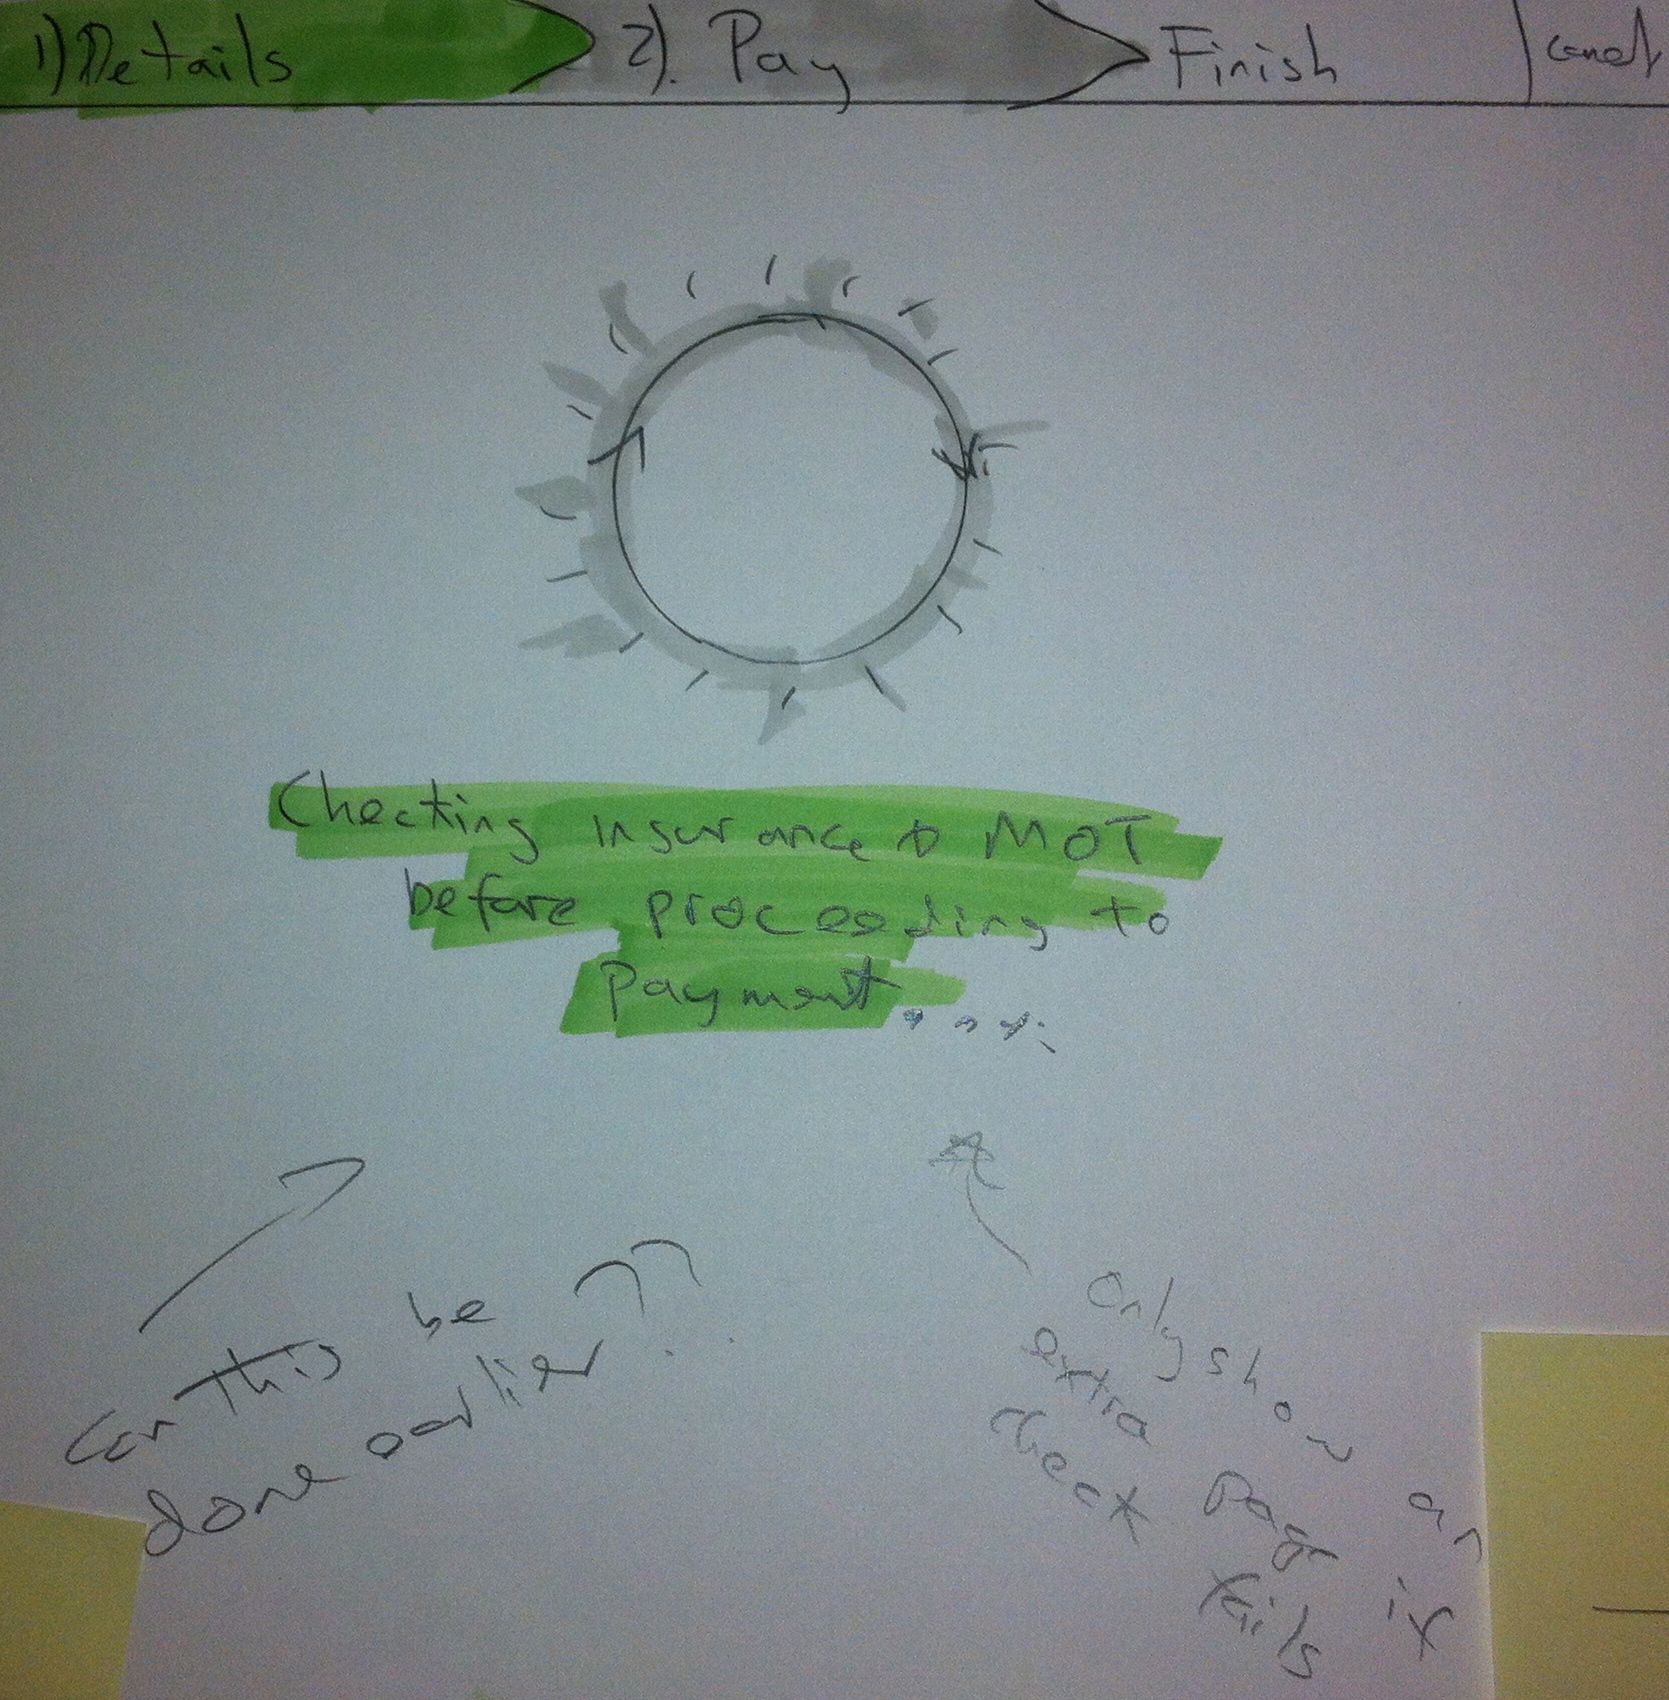 1) Details 2). Pay Finish
Checking insurance & MOT
before proceeding to
Payment....
Can this be
done earlier??
Only show an
extra page if
check fails